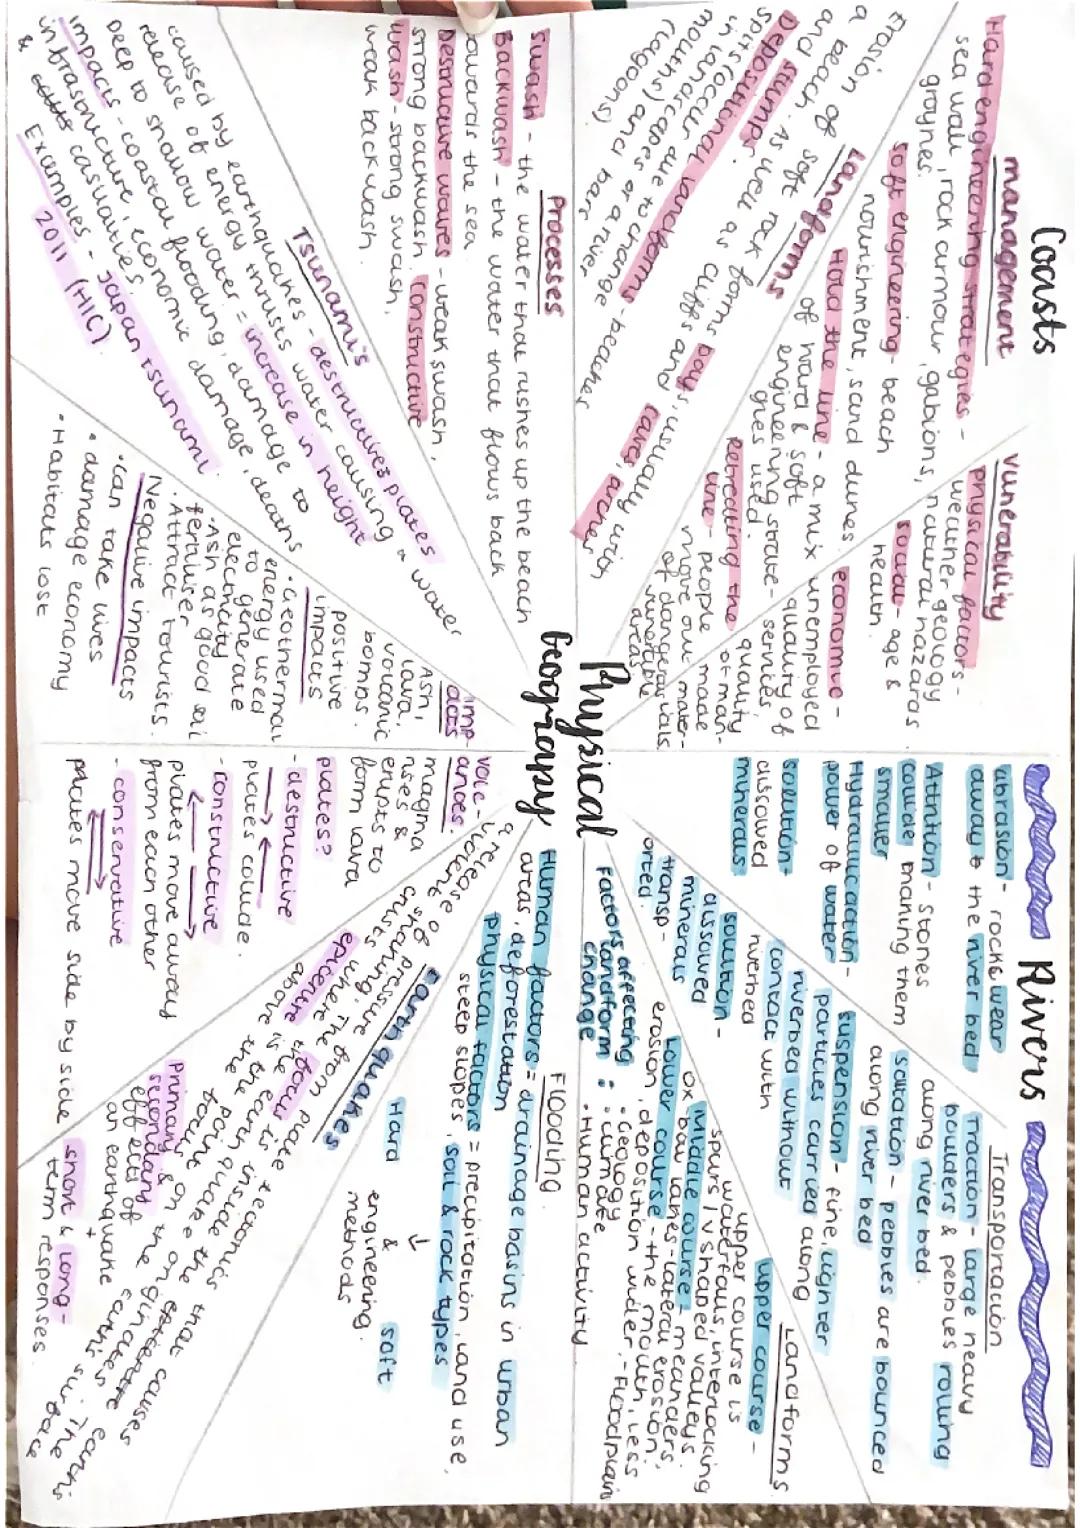 Coasts
management
Hard engineering strategies -
sea wall, rock armour, gabions,
groynes.
soft engineering - beach
nourishment, sand dunes.
Hold the line - a mix
of hard & soft
engineering strate-
gies used.
Retreating the
line - people
move out
of dangerous
vunerable
areas
vunerability
physical factors -
weather, geology
natural hazards.
social - age &
health.
economic -
unemployed
quality of
services,
quality
of man-
made
mater-
ials.
Landforms
Erosion of soft rock forms bays, usually with
a beach. As well as cliffs and caves, arches
and stumps.
Depositional landforms - beaches
spits (occur due to change
in landscapes or a river
mouths) and bars
(lagoons)
Processes
Swash - the water that rushes up the beach
Backwash - the water that flows back
owards the sea.
Destructive waves - weak swash,
strong backwash. Constructive
wash - strong swash,
weak backwash.
Tsunami's
caused by earthquakes - destructives plates
release of energy thrusts water causing a water
Deep to shallow water = increase in height
impacts - coastal flooding, damage to
infrastructure, economic damage, deaths
& casualities.
Examples - Japan tsunami
2011 (HIC).
Physical
Geograpy
Rivers
abrasion - rocks wear
away the river bed
Attrition - stones
collide making them
smaller
Hydraulic action -
power of water
solution -
dissolved
minerals
Transportation
Traction - large heavy
boulders & pebbles rolling
along river bed.
saltation - pebbles are bounced
along river bed
suspension - fine, lighter
particles carried along
riverbed without
contact with
riverbed
solution -
dissolved
minerals
transp-
orted.
Landforms
upper course -
upper course is
waterfalls, interlocking
spurs / v shaped valleys.
Middle course - meanders,
ox bow lakes - lateral erosion.
Lower course - the mouth, less
erosion, deposition wider, - Floodplain
Factors affecting
landform
change :
· Geology
· climate
· Human activity
Flooding
Human factors = drainage basins in urban
areas, deforestation
Physical factors = precipitation, land use,
steep slopes, soil & rock types
Hard
&
soft
engineering
methods
Earthquakes
a release of pressure from plate tectonics that causes
epicentre
Primary &
secondary
effects of
an earthquake +
short & long-
term responses.
volc-
anoes.
magma
rises &
erupts to
form lava
plates?
- destructive
plates collide.
- constructive
plates move away
from each other
- conservative
plates move side by side
imp-
acts
Ash,
lava,
volcanic
bombs.
positive
impacts
· Geothermal
energy used
to generate
electricity
· Ash as good soil
fertiliser
· Attract tourists.
Negative impacts
· can take lives
· damage economy
· Habitats lost